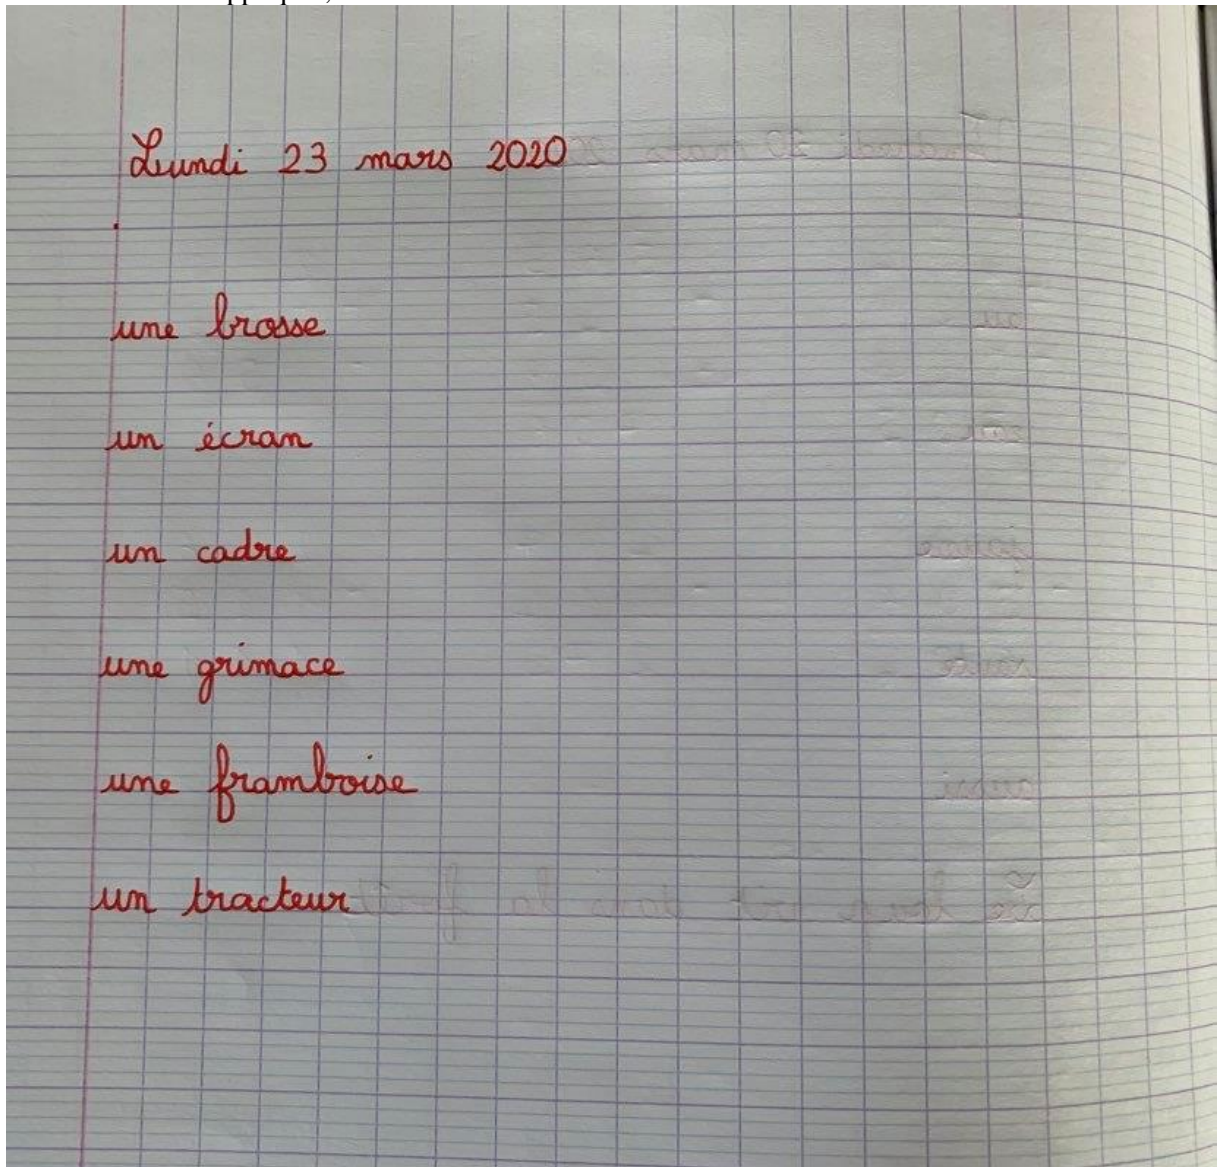 Lundi 23 mars 2020
une brosse
un écran
un cadre
une grimace
une framboise
un tracteur